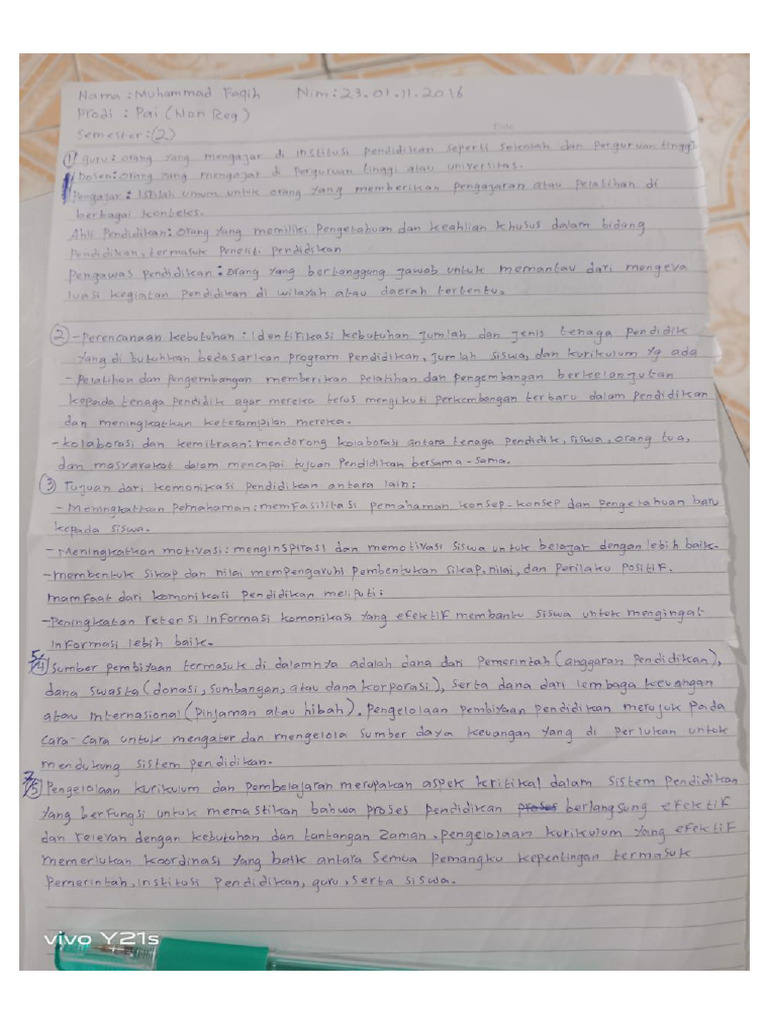 Nama : Muhammad Faqih Nim : 23.01.11.2016
Prodi : Pai (Non Reg)
Semester : (2)
Date
① Guru : orang yang mengajar di institusi pendidikan seperti sekolah dan perguruan tinggi
Dosen : orang yang mengajar di perguruan tinggi atau universitas.
Pengajar : Istilah umum untuk orang yang memberikan pengajaran atau pelatihan di
berbagai konteks.
Ahli Pendidikan : orang yang memiliki Pengetahuan dan keahlian khusus dalam bidang
Pendidikan, termasuk Peneliti pendidikan
Pengawas Pendidikan : orang yang bertanggung jawab untuk memantau dari mengeva
luasi kegiatan Pendidikan di wilayah atau daerah tertentu.
② - Perencanaan kebutuhan : Identifikasi kebutuhan jumlah dan jenis tenaga pendidik
yang di butuhkan bedasarkan program pendidikan, jumlah siswa, dan kurikulum yg ada
- Pelatihan dan pengembangan memberikan pelatihan dan pengembangan berkelanjutan
kepada tenaga pendidik agar mereka terus mengikuti perkembangan terbaru dalam pendidikan
dan meningkatkan keterampilan mereka.
- kolaborasi dan kemitraan : mendorong kolaborasi antara tenaga pendidik, siswa, orang tua,
dan masyarakat dalam mencapai tujuan Pendidikan bersama-sama.
③ Tujuan dari komonikasi pendidikan antara lain :
- Meningkatkan Pemahaman : memfasilitasi pemahaman konsep-konsep dan pengetahuan baru
kepada siswa.
- Meningkatkan motivasi : menginspirasi dan memotivasi siswa untuk belajar dengan lebih baik.
- membentuk sikap dan nilai mempengaruhi pembentukan sikap, nilai, dan perilaku positif.
mamfaat dari komonikasi pendidikan meliputi :
- Peningkatan retensi informasi komonikasi yang efektif membantu siswa untuk mengingat
informasi lebih baik.
④ Sumber pembiyaan termasuk di dalamnya adalah dana dari pemerintah (anggaran pendidikan),
dana swasta (donasi, sumbangan, atau dana korporasi), serta dana dari lembaga keuangan
atau internasional (pinjaman atau hibah). Pengelolaan pembiyaan pendidikan merujuk pada
cara-cara untuk mengatur dan mengelola sumber daya keuangan yang di perlukan untuk
mendukung sistem pendidikan.
⑤ Pengelolaan kurikulum dan pembelajaran merupakan aspek kritikal dalam sistem pendidikan
yang berfungsi untuk memastikan bahwa proses pendidikan proses berlangsung efektif
dan relevan dengan kebutuhan dan tantangan zaman. pengelolaan kurikulum yang efektif
memerlukan koordinasi yang baik antara semua pemangku kepentingan termasuk
pemerintah, institusi pendidikan, guru, serta siswa.
vivo Y21s